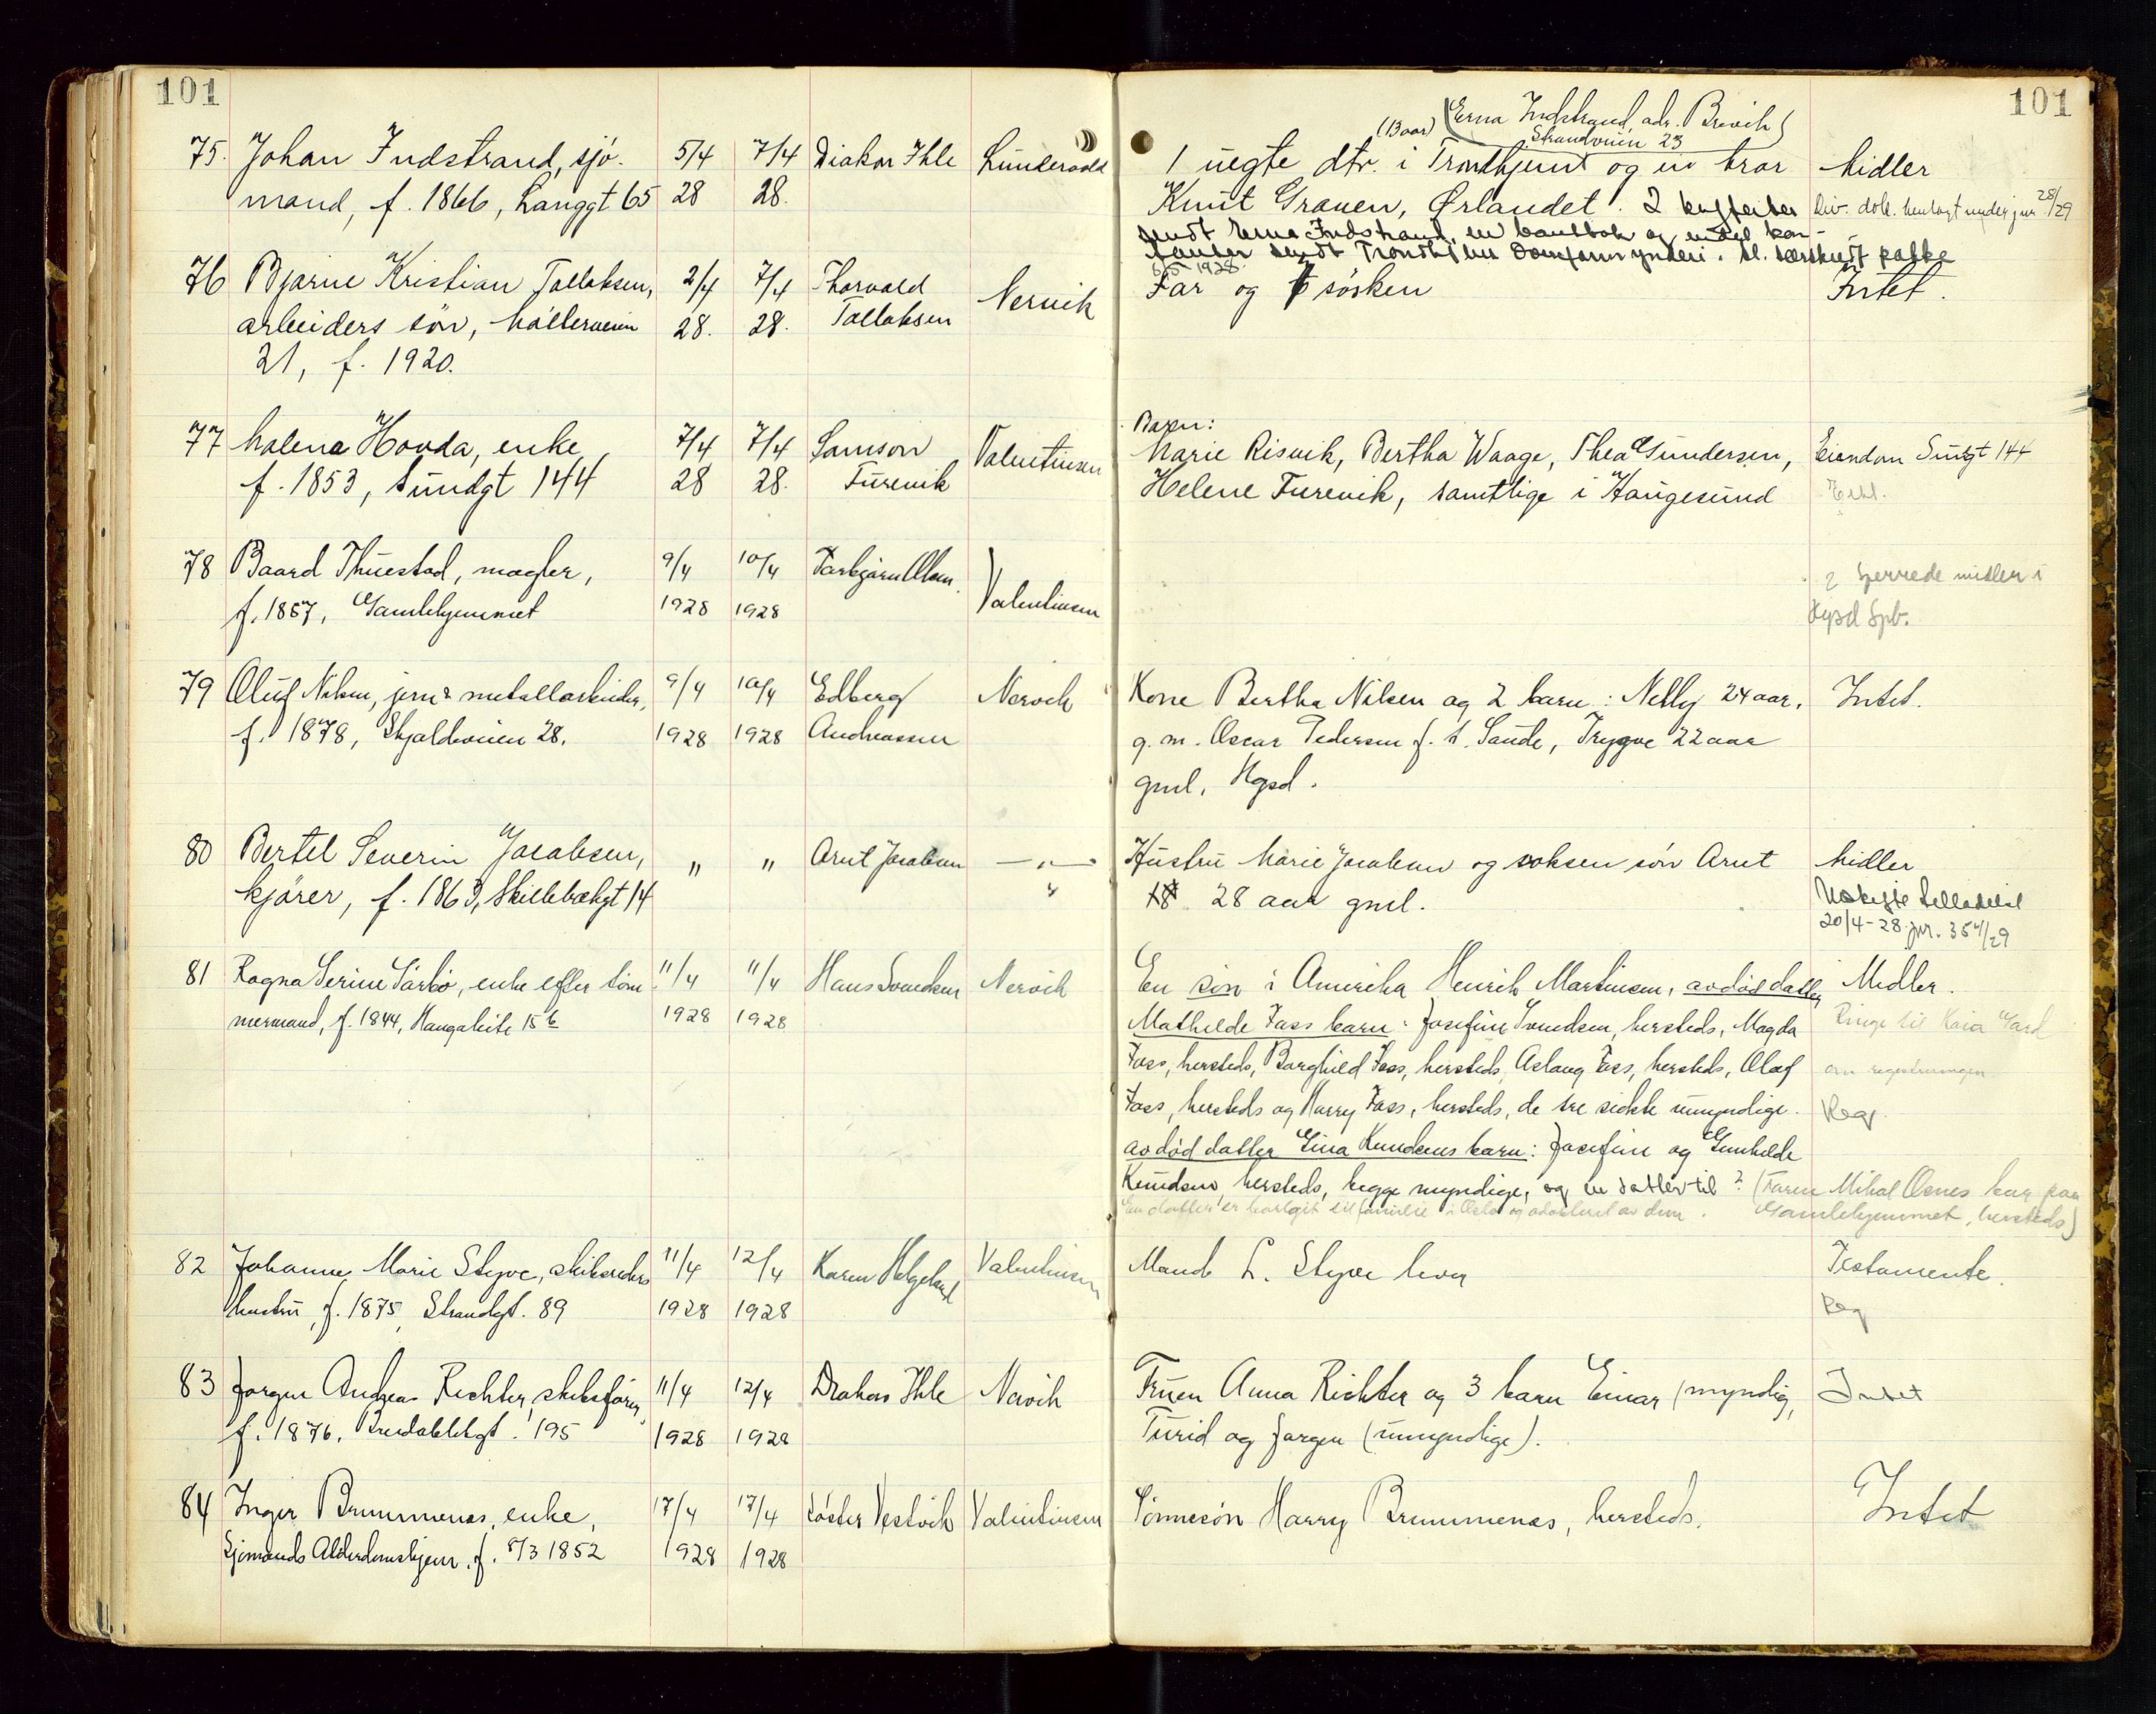 101
101
75. Johan Indstrand, sjö- 5/4 7/4 Diakon Ihle Lundervold
mand, f. 1866, Langgt 65 28 28.
(13 aar) (Erna Indstrand, adr. Brevik)
Strandveien 23
1 uegte dtr. i Trondhjem og en bror Midler
Knut Grauen, Ørlandet. 2 kufferter Div. dok. henlagt under jnr 28/29
sendt Erna Indstrand, en bankbok og endel kon-
tanter sendt Trondhjem overformynderi. Sl. særskilt pakke
1928.
76 Bjarne Kristian Tollaksen, 2/4 7/4 Thorvald Nervik Far og 6 søsken Intet.
arbeiders sön, 28. 28. Tollaksen
21, f. 1920.
77 Malena Hovda, enke, 7/4 7/4 Samson Valentinsen
f. 1853, Sundgt 144 28 28. Turevik
Barn:
Marie Risvik, Bertha Waage, Thea Gundersen, Eiendom Sundgt 144
Helene Turevik, samtlige i Haugesund
78 Baard Thuestad, mægler, 9/4 10/4 Torbjørn Olsen. Valentinsen
f. 1857, Gamlehjemmet 1928 1928
2 sperrede midler i
Hgsd Spb.
79 Oluf Nilsen, jern & metallarbeider, 9/4 10/4 Edberg Nervik
f. 1878, Skjoldveien 28. 1928 1928 Andreassen
Kone Bertha Nilsen og 2 barn: Nelly 24 aar, Intet.
g. m. Oscar Pedersen f. t. Sauda, Trygve 22 aar
gml, Hgsd.
80 Bertel Severin Jacobsen, " " Arnt Jacobsen — " —
kjörer, f. 1863, Skillebækgt 14
Hustru Marie Jacobsen og voksen sön Arnt Midler
28 aar gml. Uskifte tilladelse
20/4-28. jnr. 354/29
81 Ragna Serine Sörbö, enke efter töm- 11/4 11/4 Hans Svendsen Nervik
mermand, f. 1844, Haugaleite 15 b 1928 1928
En sön i Amerika Henrik Martinsen, avdöd datter Midler.
Mathilde Foss barn: Josefine Svendsen, hersteds, Magda Ringe til Kaia Gard
Foss, hersteds, Borghild Foss, hersteds, Aslaug Foss, hersteds, Olaf om registreringen
Foss, hersteds og Harry Foss, hersteds, de tre sidste umyndige. Reg.
avdöd datter Gina Knudsens barn: Josefine og Gunhilde
Knudsen, hersteds, begge myndige, og en datter til? (Faren Mikal Osnes bor paa
En datter er bortgit til familie i Oslo og adoptert av dem. Gamlehjemmet, hersteds)
82 Johanne Marie Stepve, skibsreders 11/4 12/4 Karen Helgeland Valentinsen
hustru, f. 1875, Strandgt. 89 1928 1928
Mand L. Stepve lever Testamente.
Reg
83 Jørgen Andreas Richter, skibsförer, 11/4 12/4 Diakon Ihle Nervik
f. 1876. Breidablikgt. 195 1928 1928
Fruen Anna Richter og 3 barn Einar (myndig, Intet
Turid og Jørgen (umyndige).
84 Inger Brummenæs, enke, 17/4 17/4 Söster Vestvik Valentinsen
Sjömands Alderdomshjem. f. 8/3 1852 1928 1928
Sönnesön Harry Brummenæs, hersteds. Intet